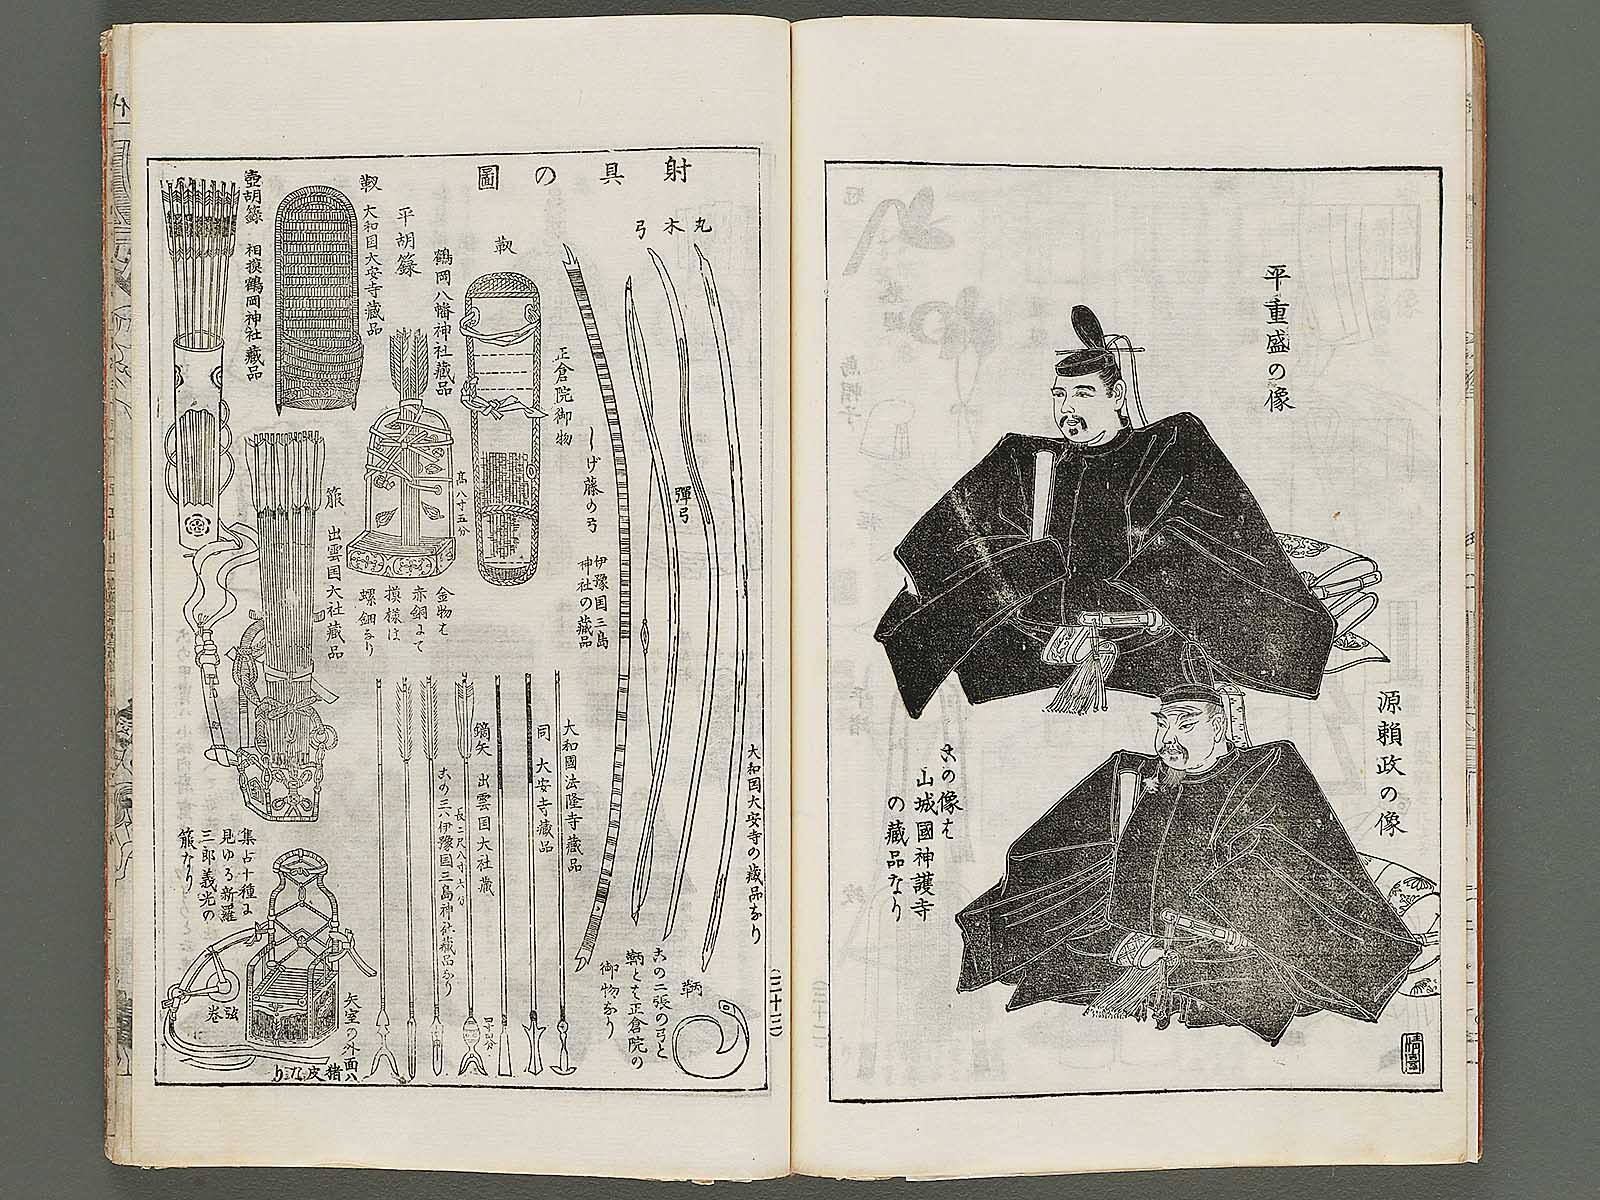 平重盛の像
源頼政の像
古の像は
山城國神護寺
の藏品なり
射具の圖
丸木弓
彈弓
大和国大安寺の藏品なり
鞆
古の二張の弓と
鞆とは正倉院の
御物なり
しげ藤の弓
伊豫国三島
神社の藏品
靫
正倉院御物
大和國法隆寺藏品
同 大安寺藏品
鏑矢 出雲国大社藏
長二尺八寸六分
古の三ハ伊豫国三島神社藏品なり
平胡籙
鶴岡八幡神社藏品
高八寸五分
金物は
赤銅にて
摸様は
螺鈿なり
靫
大和国大安寺藏品
壺胡籙 相摸鶴岡神社藏品
箙 出雲国大社藏品
集古十種に
見ゆる新羅
三郎義光の
箙なり
弦巻
矢室の外面ハ
猪皮なり
(三十三)